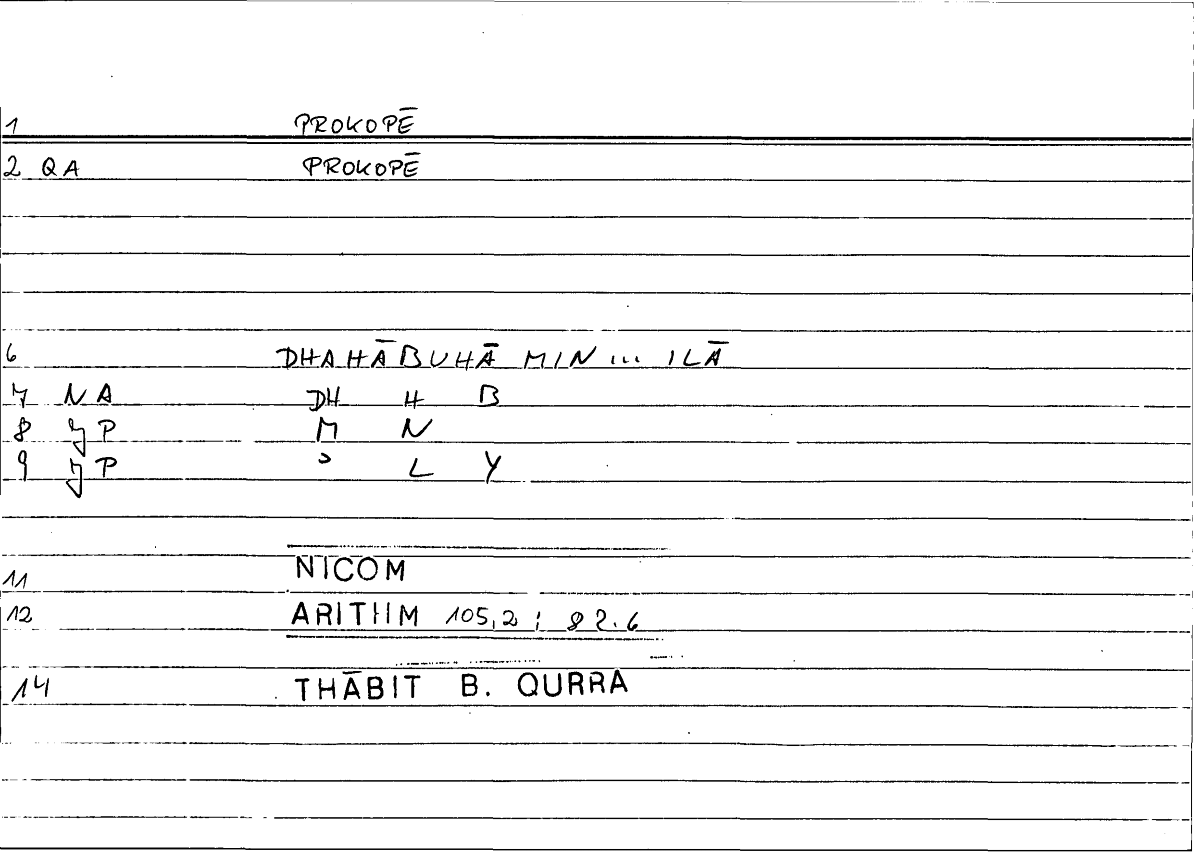 1 PROKOPĒ
2 QA PROKOPĒ
6 DHAHĀBUHĀ MIN ... ILĀ
7 NA DH H B
8 YP M N
9 YP ʾ L Y
11 NICOM
12 ARITHM 105,2 ; 82.6
14 THĀBIT B. QURRA